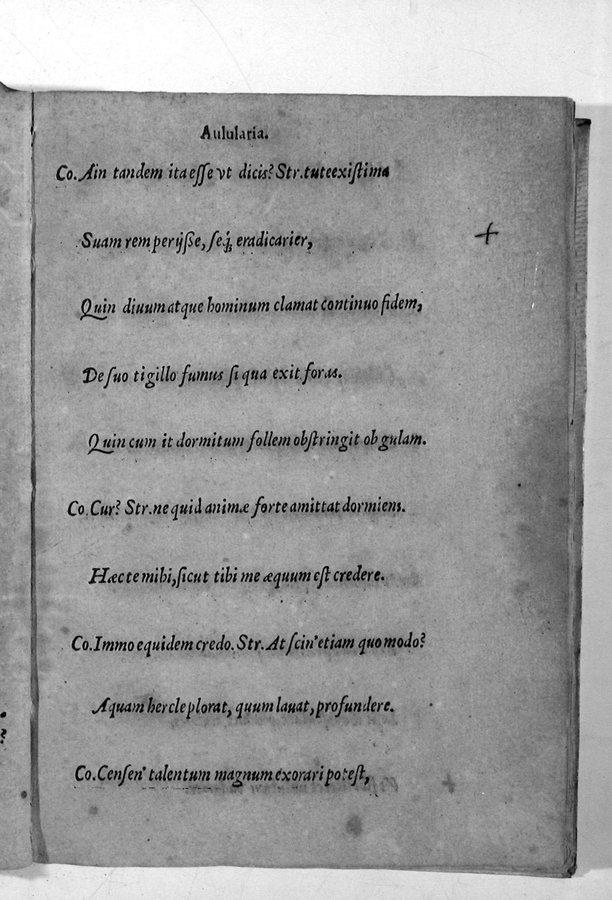 Aulularia.
Co. Ain tandem ita esse vt dicis? Str. tute existima
Suam rem perijsse, seq́; eradicarier,
Quin diuum atque hominum clamat continuo fidem,
De suo tigillo fumus si qua exit foras.
Quin cum it dormitum follem obstringit ob gulam.
Co. Cur? Str. ne quid animæ forte amittat dormiens.
Hæc te mihi, sicut tibi me æquum est credere.
Co. Immo equidem credo. Str. At scin' etiam quomodo?
Aquam hercle plorat, quum lauat, profundere.
Co. Censen' talentum magnum exorari potest,